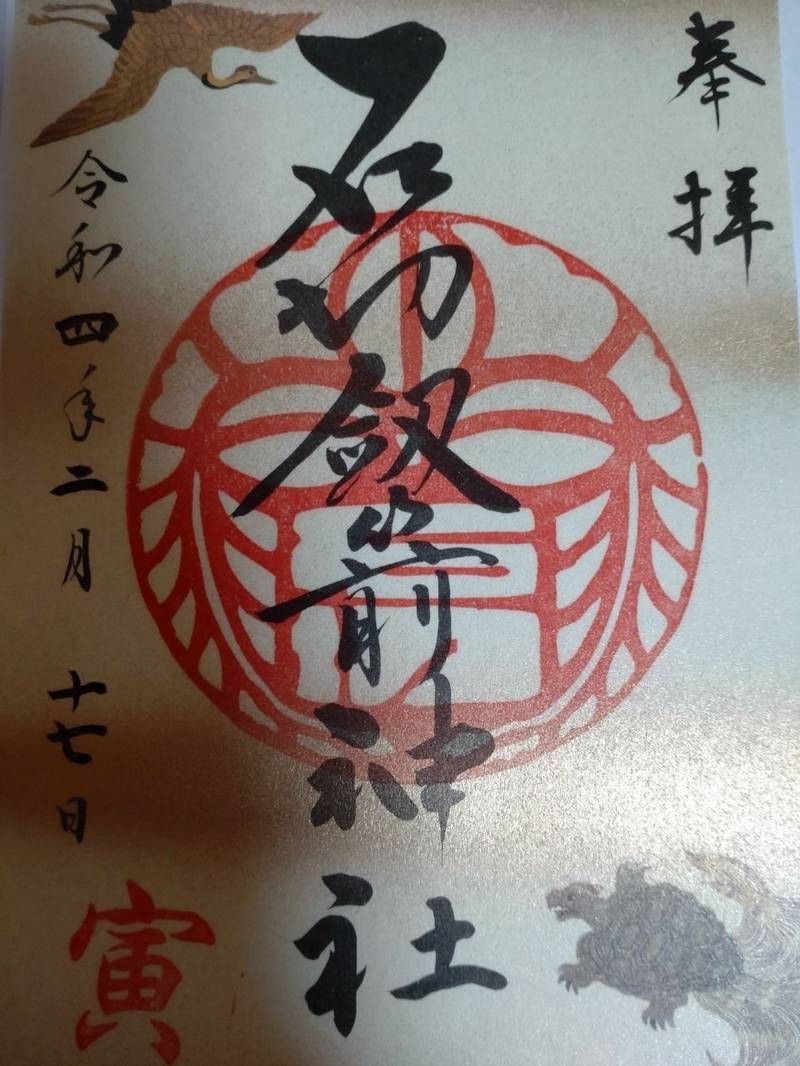 奉拝
石切劔箭神社
令和四年二月十七日
寅